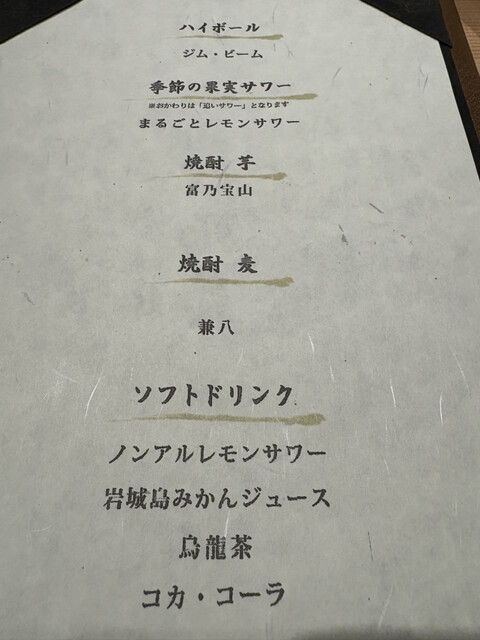 ハイボール
ジム・ビーム
季節の果実サワー
※おかわりは「追いサワー」となります
まるごとレモンサワー
焼酎 芋
富乃宝山
焼酎 麦
兼八
ソフトドリンク
ノンアルレモンサワー
岩城島みかんジュース
烏龍茶
コカ・コーラ